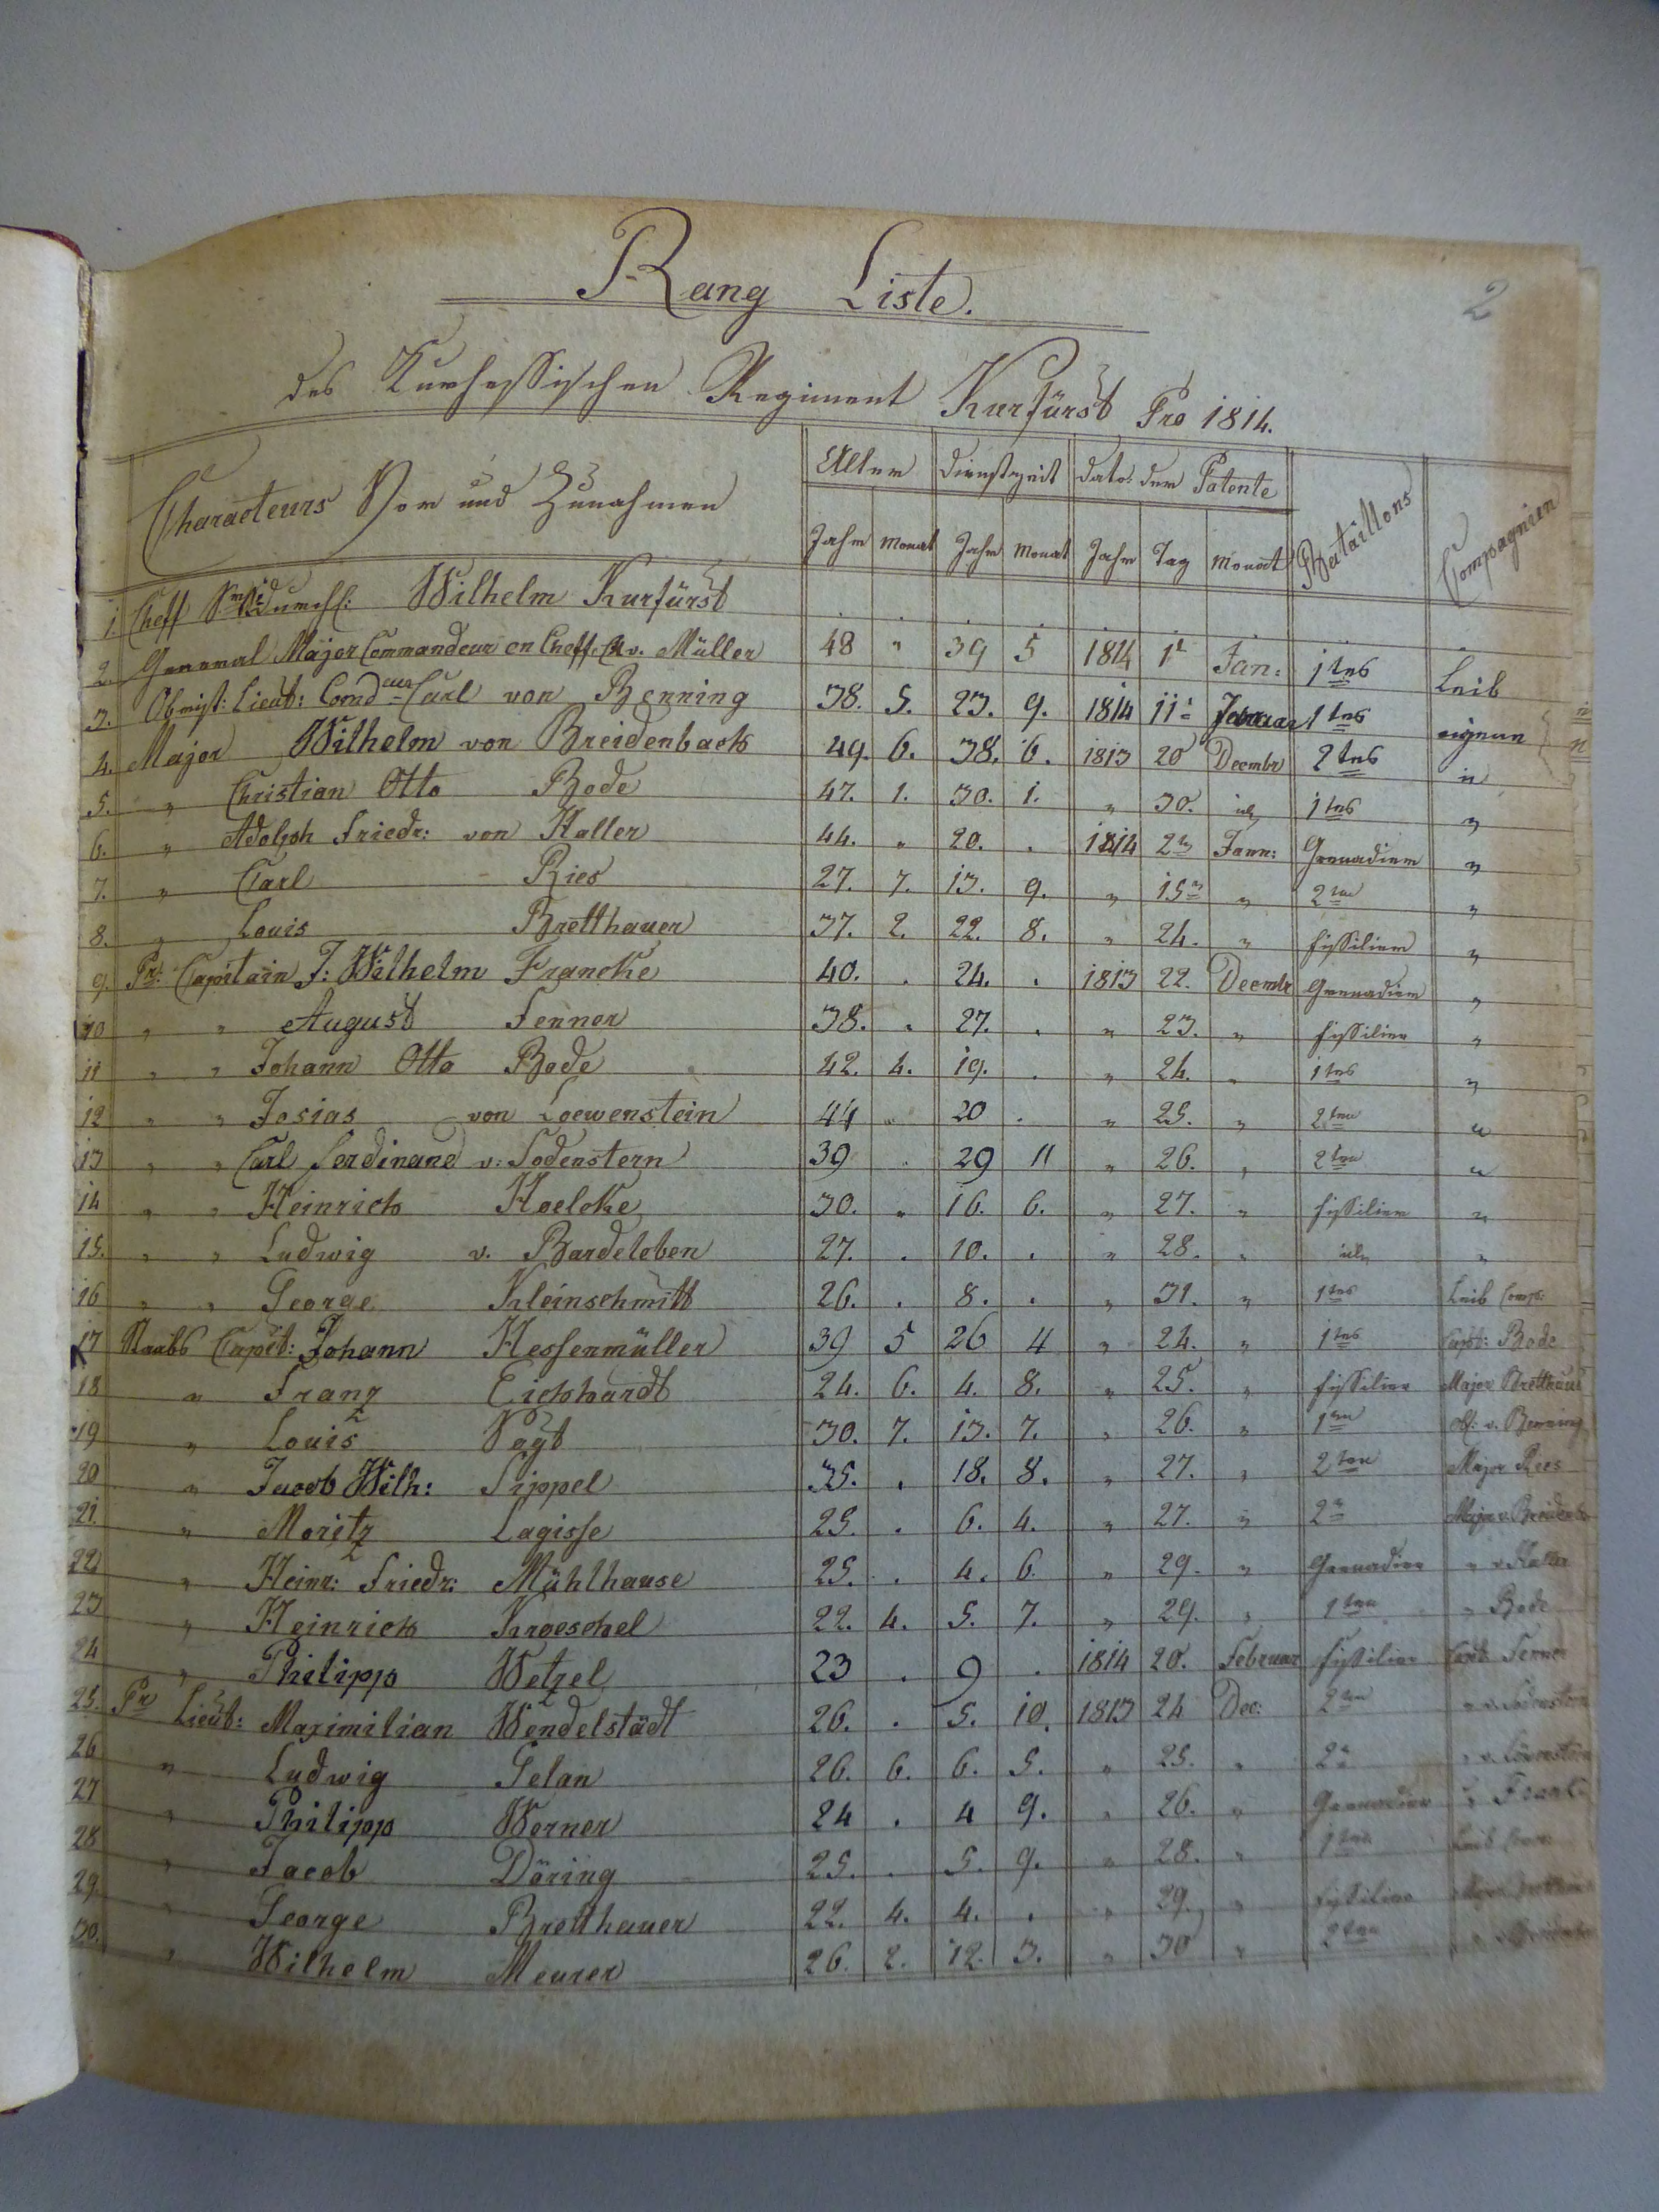 2
Rang Liste.
des Kurhessischen Regiment Kurfürst Pro 1814.
Characteurs Vor und Zunahmen Alter Dienstzeit Dato: der Patente Bataillons Compagnien
Jahr Monat Jahr Monat Jahr Tag Monat
1. Cheff Durchl: Wilhelm Kurfürst
2. General Major Commandeur en Cheff v. Müller 48 " 39 5 1814 1t Jan: 1tes Leib
3. Obrist: Lieut: Comdeur Carl von Benning 38. 5. 23. 9. 1814 11t Februar 1tes eigene
4. Major Wilhelm von Breidenbach 49. 6. 38. 6. 1813 20 Decembr 2tes "
5. " Christian Otto Bode 47. 1. 30. 1. " 30. 1tes "
6. " Adolph Friedr: von Haller 44. " 20. . 1814 2t Jann: Grenadier "
7. " Carl Ries 27. 7. 13. 9. " 15t " 2ten "
8. " Louis Bretthauer 37. 2. 22. 8. " 24. " Füssilier "
9. Pr: Capitain J: Wilhelm Francke 40. . 24. . 1813 22. Decembr Grenadier "
10 " " August Fenner 38. . 27. . " 23. " Füssilier "
11 " " Johann Otto Bode 42. 4. 19. . " 24. " 1tes "
12 " " Josias von Loewenstein 44 " 20 . " 25. " 2ten "
13 " " Carl Ferdinand v: Sodenstern 39 . 29 11 " 26. " 2ten "
14 " " Heinrich Hoelcke 30. " 16. 6. " 27. " Füssilier "
15. " " Ludwig v. Bardeleben 27. . 10. . " 28. " "
16 " " George Kleinschmitt 26. . 8. . " 31. " 1tes Leib Comp:
17 Staabs Capit: Johann Hessenmüller 39 5 26 4 " 24. " 1tes Capt: Bode
18 " Franz Eichhardt 24. 6. 4. 8. " 25. " Füssilier Major Bretthauer
19 " Louis Vogt 30. 7. 13. 7. " 26. " 1ten Ob: v. Benning
20 " Jacob Wilh: Sippel 35. . 18. 8. " 27. " 2ten Major Ries
21. " Moritz Lagisse 25. . 6. 4. " 27. " 2t Major v. Breidenb
22 " Heinr: Friedr: Mühlhause 25. . 4. 6 " 29. " Grenadier " v. Haller
23 " Heinrich Kroeschel 22. 4. 5. 7. " 29. " 1ten " Bode
24 " Philipp Wetzel 23 . 9 . 1814 20. Februar Füssilier Capt. Fenner
25. Pr Lieut: Maximilian Wendelstädt 26. . 5. 10. 1813 24 Dec: 2ten
26 " Ludwig Gelan 26. 6. 6. 5. " 25. " 2t
27 " Philipp Werner 24 . 4 9. " 26. " Grenadier
28 " Jacob Döring 25. . 5. 9. " 28. " 1ten Leib
29. " George Bretthauer 22. 4. 4. . " 29. " Füssilier Major
30. " Wilhelm Meurer 26. 2. 12. 3. " 30 " 2ten